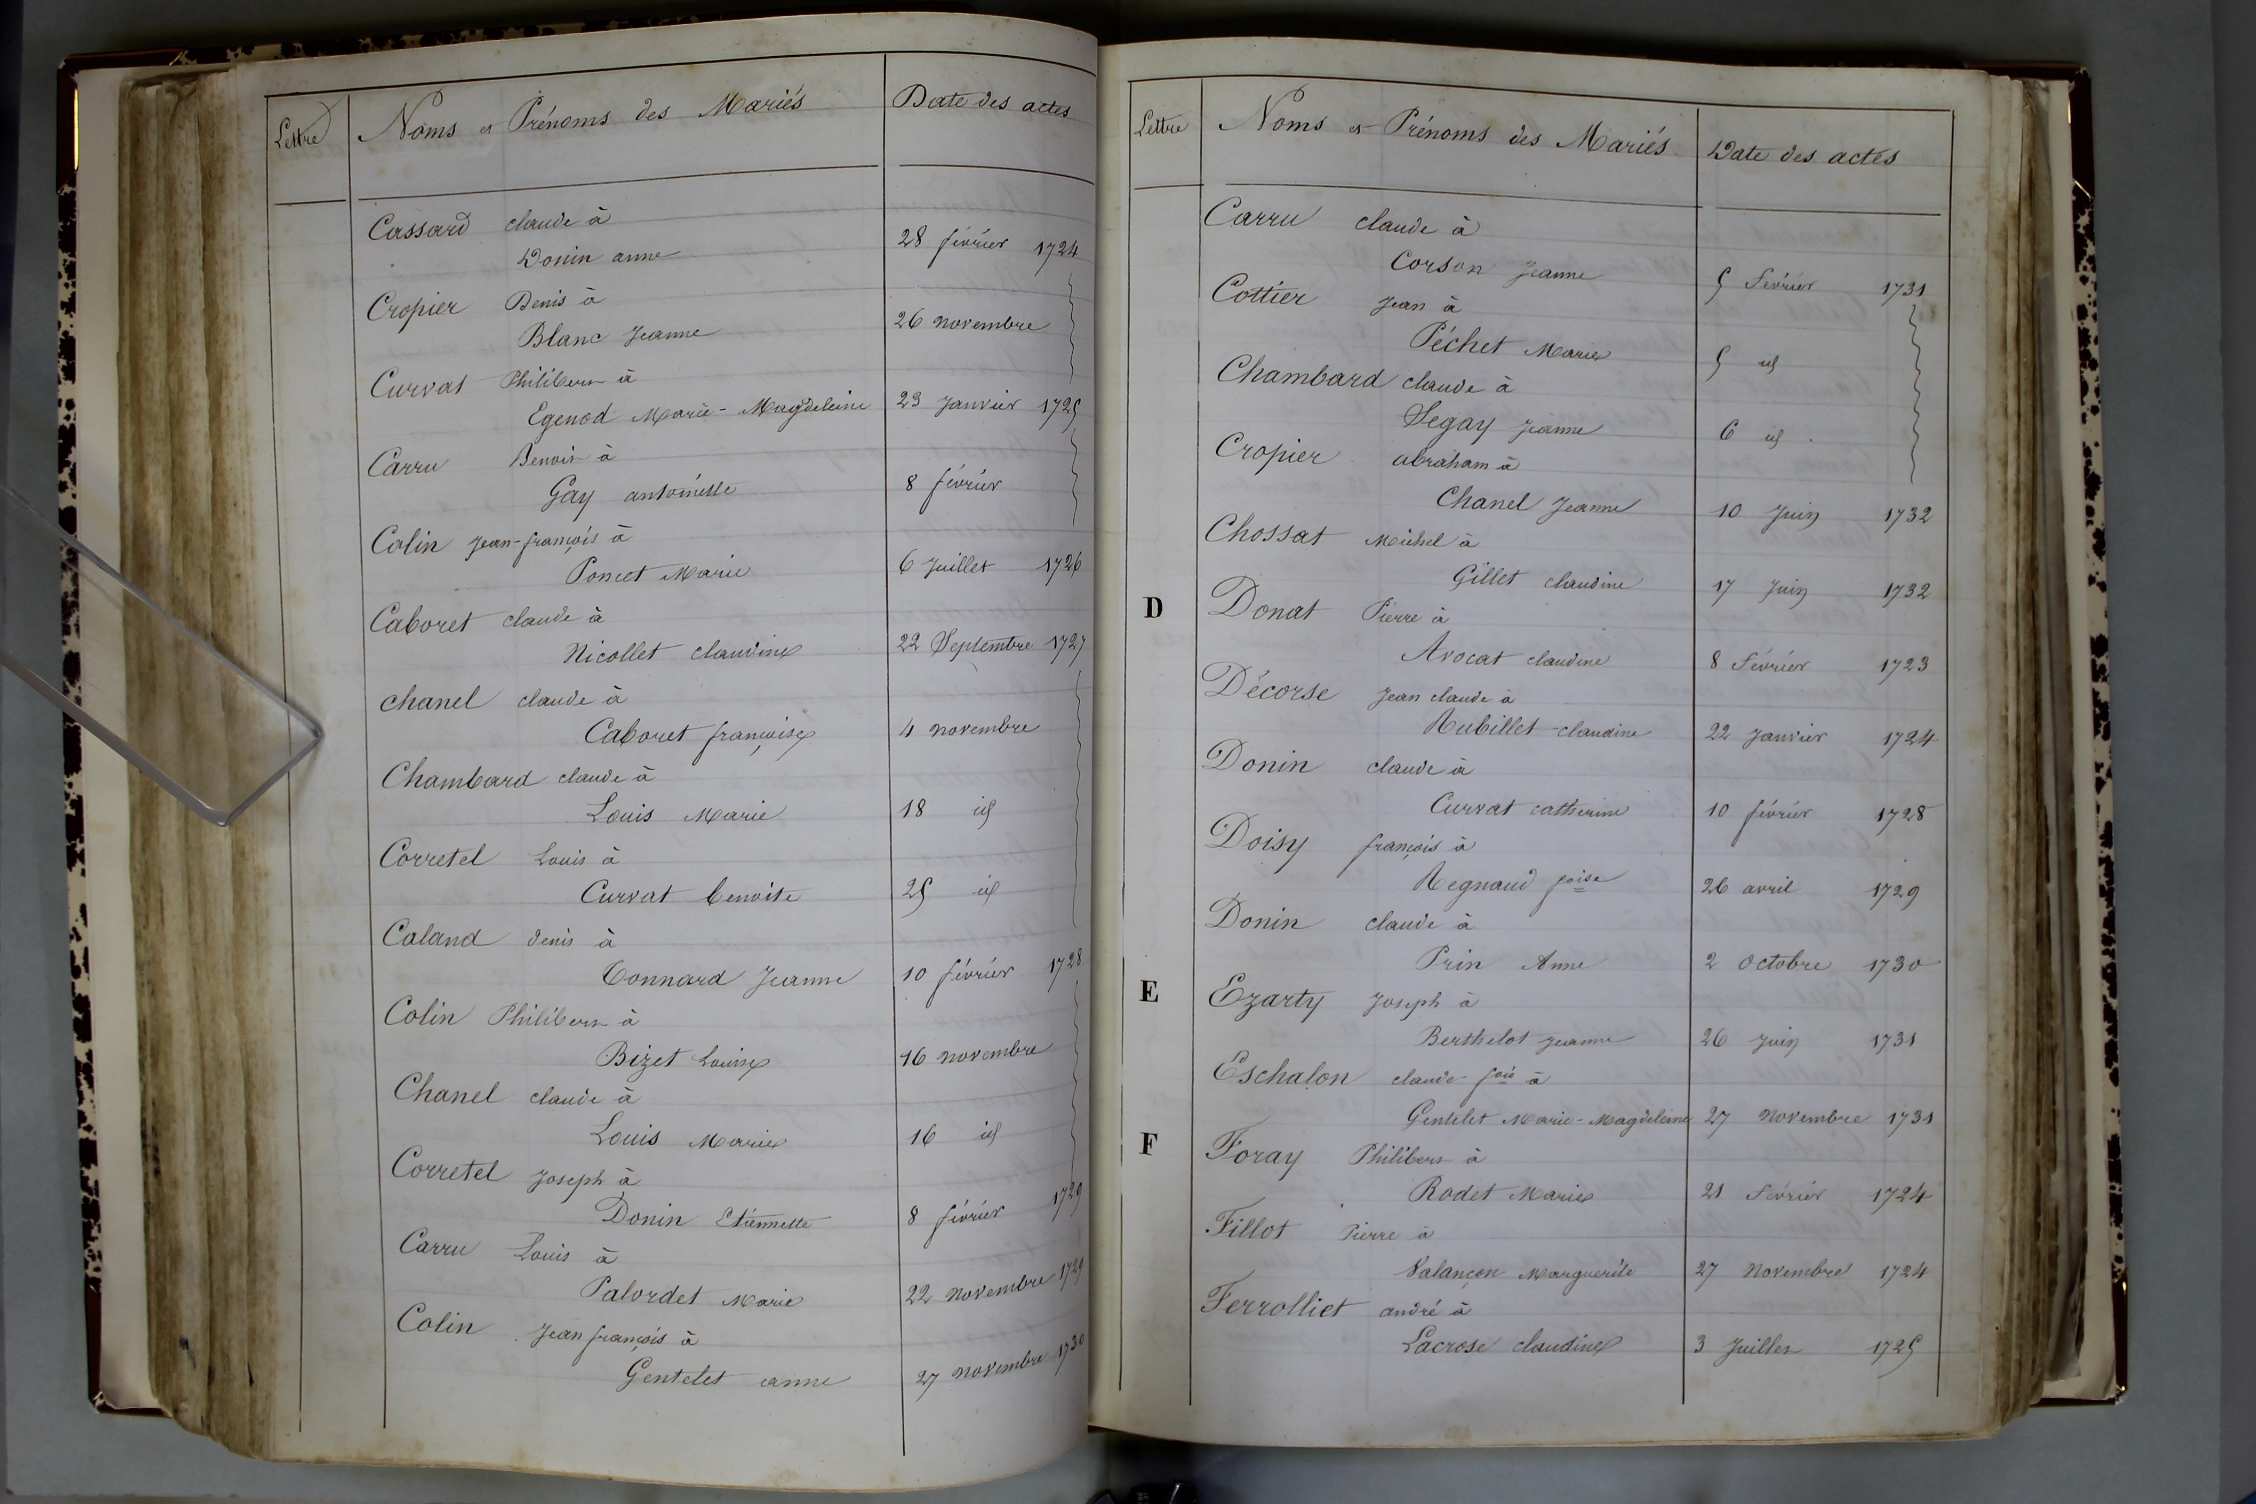 Lettre Noms et Prénoms des Mariés Date des actes
Cassard claude à
Donin anne 28 février 1724
Cropier Denis à
Blanc Jeanne 26 novembre
Curvat Philibert à
Egenod Marie-Magdeleine 23 Janvier 1725
Carru Benoit à
Gay antoinette 8 février
Colin Jean-françois à
Poncet Marie 6 Juillet 1726
Caboret claude à
Nicollet claudine 22 Septembre 1727
chanel claude à
Caboret françoise 4 novembre
Chambard claude à
Louis Marie 18 id
Corretel Louis à
Curvat benoite 25 id
Caland denis à
Connard Jeanne 10 février 1728
Colin Philibert à
Bizet Louise 16 novembre
Chanel claude à
Louis Marie 16 id
Corretel Joseph à
Donin Etiennette 8 février 1729
Carru Louis à
Palordet Marie 22 novembre 1729
Colin Jean françois à
Gentelet anne 27 novembre 1730
Lettre Noms et Prénoms des Mariés Date des actes
Carru claude à
Corson Jeanne 5 Février 1731
Cottier Jean à
Péchet Marie 5 id
Chambard claude à
Segay Jeanne 6 id
Cropier abraham à
Chanel Jeanne 10 Juin 1732
Chossat Michel à
Gillet claudine 17 Juin 1732
D Donat Pierre à
Avocat claudine 8 Février 1723
Décorse Jean claude à
Rubillet claudine 22 Janvier 1724
Donin claude à
Curvat catherine 10 février 1728
Doisy françois à
Regnaud foise 26 avril 1729
Donin claude à
Prin Anne 2 Octobre 1730
E Ezarty Joseph à
Berthelot Jeanne 26 Juin 1731
Eschalon claude-fois à
Gentelet Marie-Magdeleine 27 Novembre 1731
F Foray Philibert à
Rodet Marie 21 Février 1724
Fillot Pierre à
Valançon Marguerite 27 Novembre 1724
Ferrolliet andré à
Lacrose claudine 3 Juillet 1725